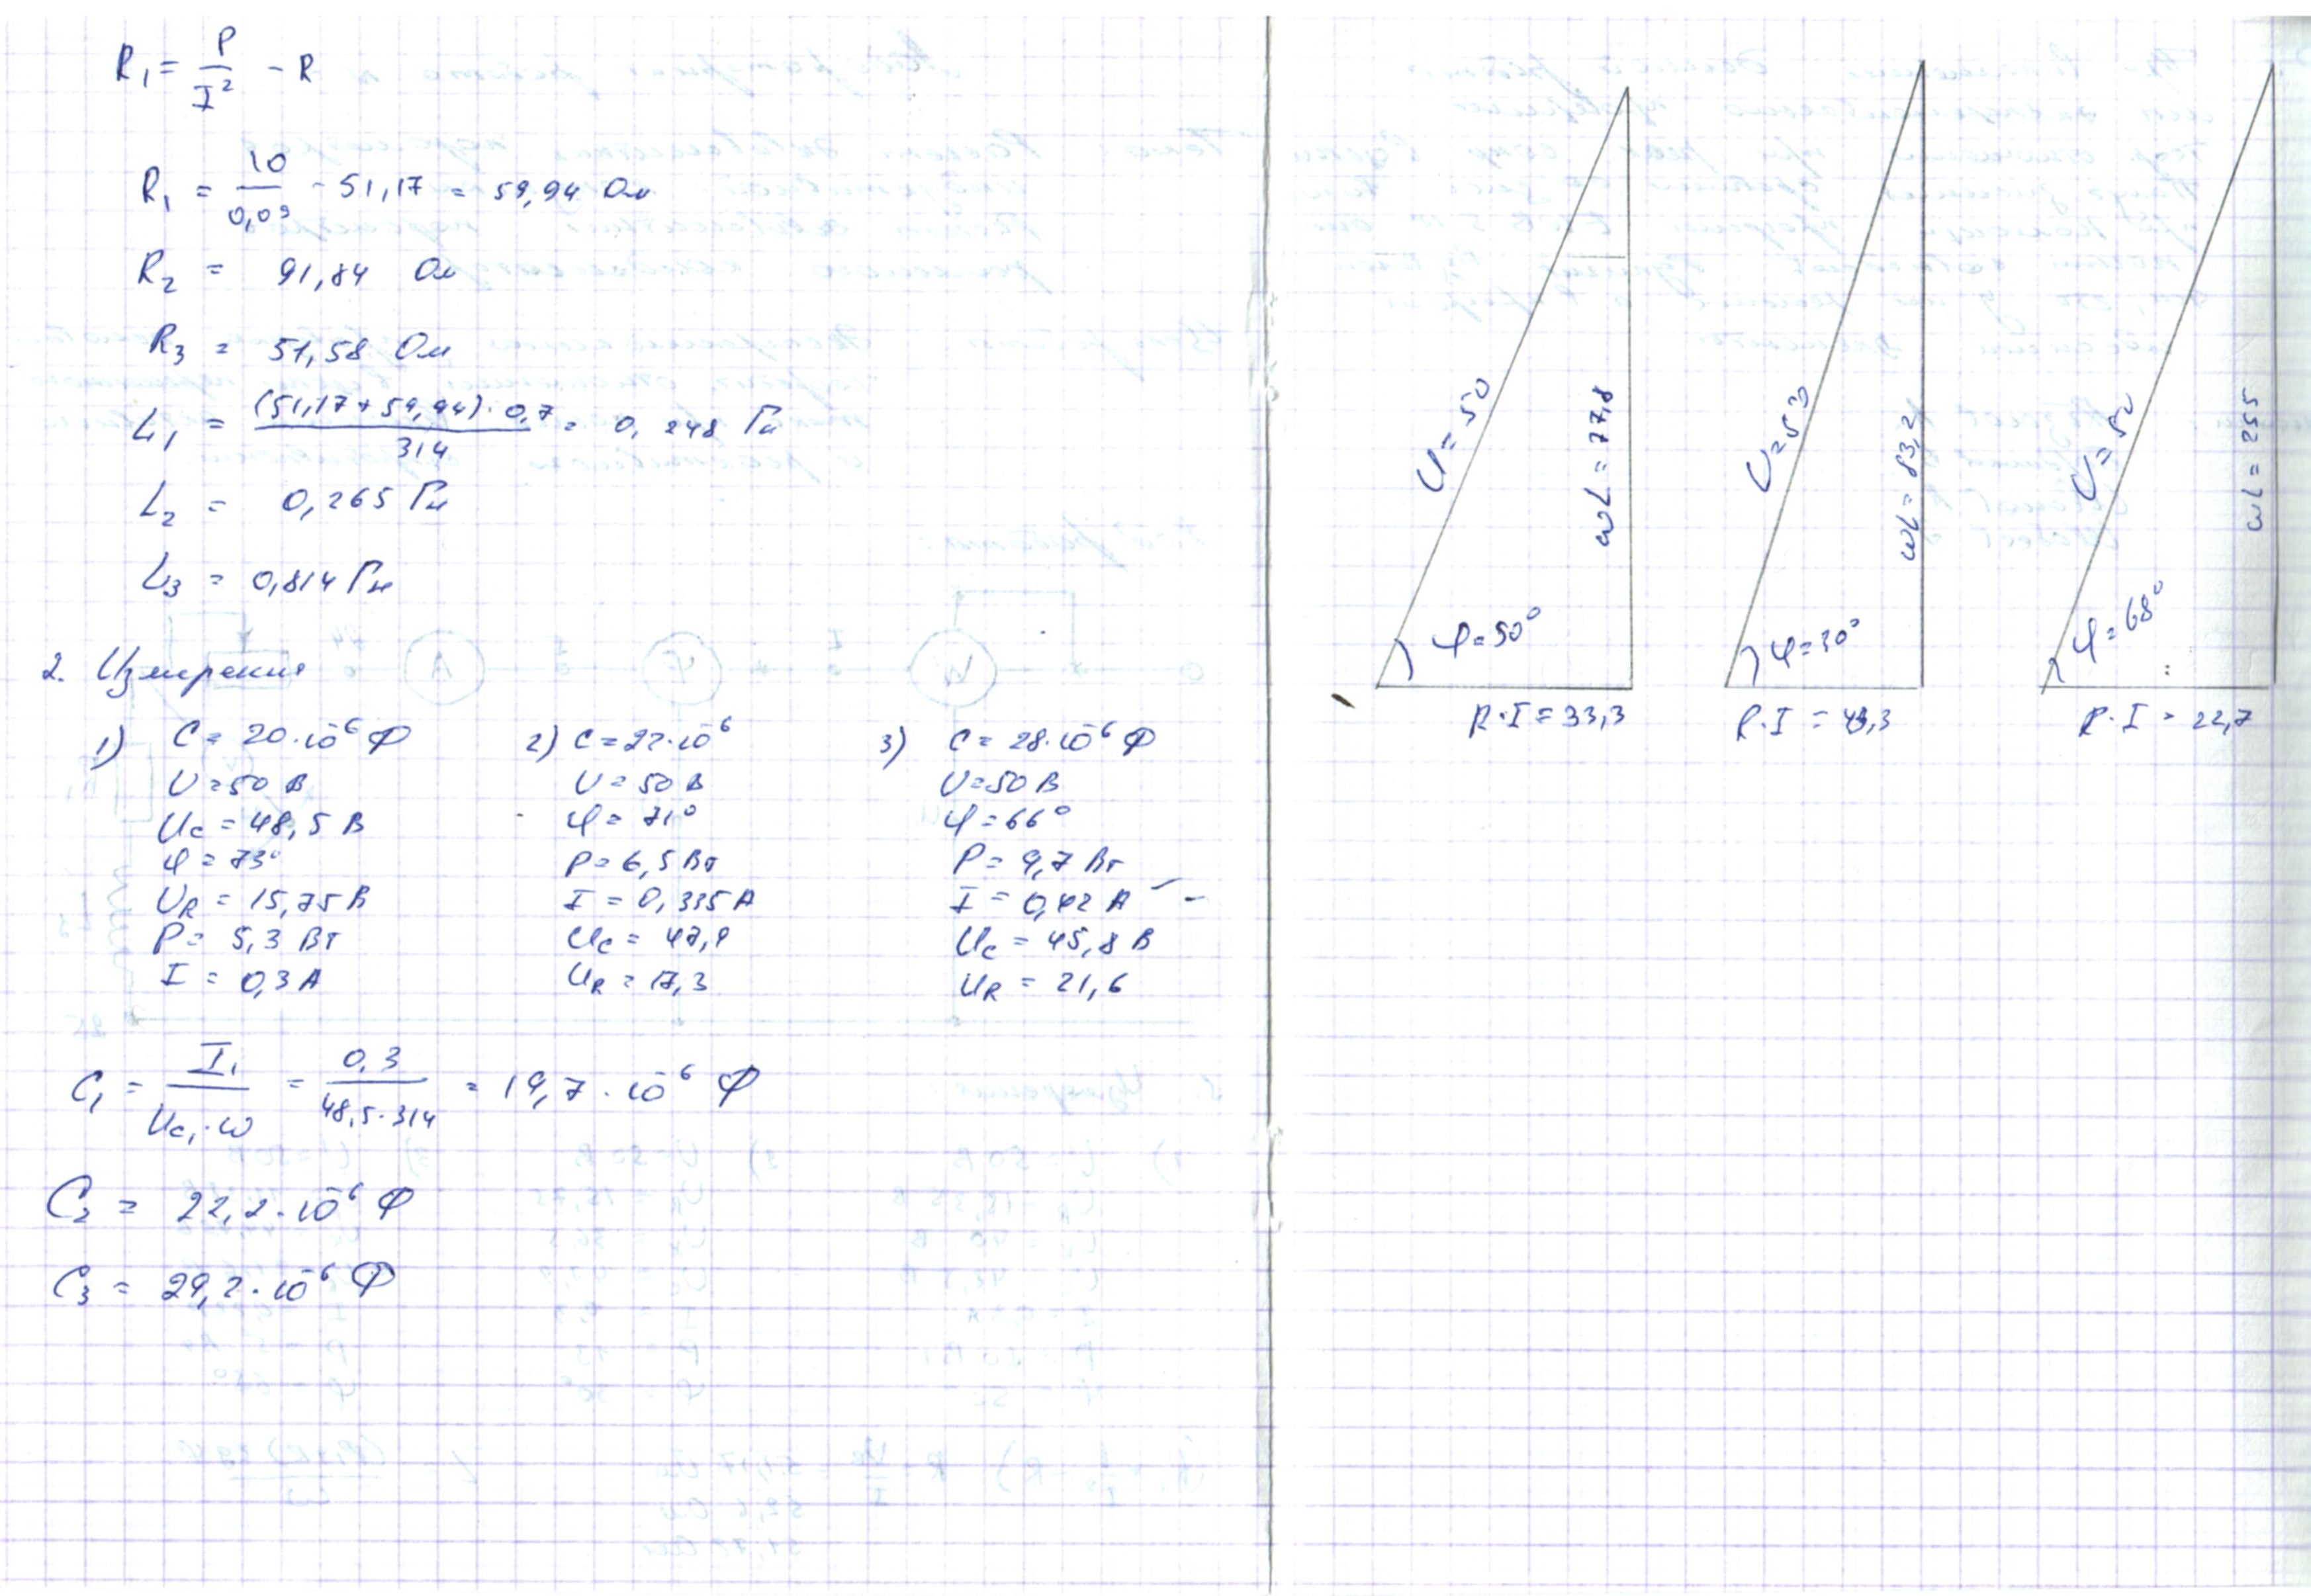 R₁ = P/I² - R
R₁ = 10/0,09 - 51,17 = 59,94 Ом
R₂ = 91,84 Ом
R₃ = 51,58 Ом
L₁ = (51,17+59,94)·0,7/314 = 0,248 Гн
L₂ = 0,265 Гн
L₃ = 0,814 Гн
2. Измерения
1) C = 20·10⁻⁶ Ф
U = 50 В
Uc = 48,5 В
φ = 73°
UR = 15,75 В
P = 5,3 Вт
I = 0,3 А
2) C = 22·10⁻⁶
U = 50 В
φ = 71°
P = 6,5 Вт
I = 0,335 А
Uc = 47,9
UR = 17,3
3) C = 28·10⁻⁶ Ф
U = 50 В
φ = 66°
P = 9,7 Вт
I = 0,42 А
Uc = 45,8 В
UR = 21,6
C₁ = I₁/Uc₁·ω = 0,3/48,5·314 = 19,7·10⁻⁶ Ф
C₂ = 22,2·10⁻⁶ Ф
C₃ = 29,2·10⁻⁶ Ф
U = 50
ωL = 77,8
φ = 50°
R·I = 33,3
U = 50
ωL = 83,2
φ = 30°
R·I = 43,3
U = 50
ωL = 255
φ = 68°
R·I = 22,7